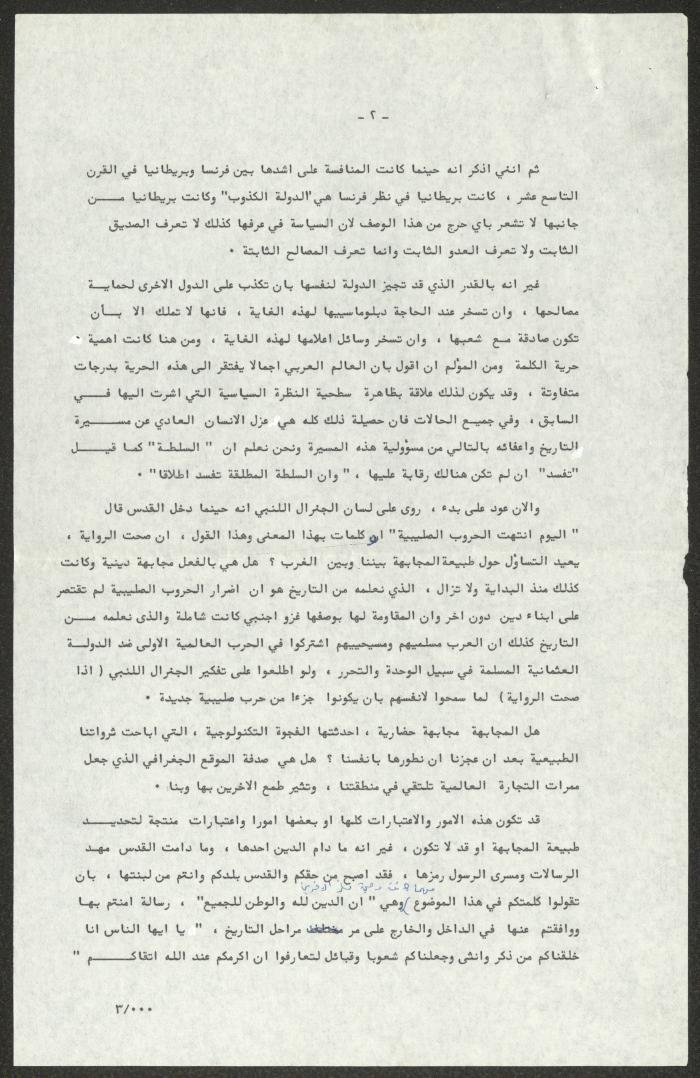 - ٢ -
ثم انني اذكر انه حينما كانت المنافسة على اشدها بين فرنسا وبريطانيا في القرن
التاسع عشر ، كانت بريطانيا في نظر فرنسا هي "الدولة الكذوب" وكانت بريطانيا مــــن
جانبها لا تشعر باي حرج من هذا الوصف لان السياسة في عرفها كذلك لا تعرف الصديق
الثابت ولا تعرف العدو الثابت وانما تعرف المصالح الثابتة .
غير انه بالقدر الذي قد تجيز الدولة لنفسها بان تكذب على الدول الاخرى لحمايــة
مصالحها ، وان تسخر عند الحاجة دبلوماسييها لهذه الغاية ، فانها لا تملك الا بــأن
تكون صادقة مــع شعبها ، وان تسخر وسائل اعلامها لهذه الغاية ، ومن هنا كانت اهمية
حرية الكلمة ومن المؤلم ان اقول بان العالم العربي اجمالا يفتقر الى هذه الحرية بدرجات
متفاوتة ، وقد يكون لذلك علاقة بظاهرة سطحية النظرة السياسية التي اشرت اليها فـــي
السابق ، وفي جميع الحالات فان حصيلة ذلك كله هي عزل الانسان العادي عن مســـــيرة
التاريخ واعفائه بالتالي من مسؤولية هذه المسيرة ونحن نعلم ان " السلطة" كما قيـــل
"تفسد" ان لم تكن هنالك رقابة عليها ، " وان السلطة المطلقة تفسد اطلاقا" .
والان عود على بدء ، روى على لسان الجنرال اللنبي انه حينما دخل القدس قال
" اليوم انتهت الحروب الصليبية" او كلمات بهذا المعنى وهذا القول ، ان صحت الرواية ،
يعيد التساؤل حول طبيعة المجابهة بيننا وبين الغرب ؟ هل هي بالفعل مجابهة دينية وكانت
كذلك منذ البداية ولا تزال ، الذي نعلمه من التاريخ هو ان اضرار الحروب الصليبية لم تقتصر
على ابناء دين دون اخر وان المقاومة لها بوصفها غزو اجنبي كانت شاملة والذى نعلمه مـــن
التاريخ كذلك ان العرب مسلميهم ومسيحييهم اشتركوا في الحرب العالمية الاولى ضد الدولــة
العثمانية المسلمة في سبيل الوحدة والتحرر ، ولو اطلعوا على تفكير الجنرال اللنبي ( اذا
صحت الرواية) لما سمحوا لانفسهم بان يكونوا جزءا من حرب صليبية جديدة .
هل المجابهة مجابهة حضارية ، احدثتها الفجوة التكنولوجية ، التي اباحت ثرواتنا
الطبيعية بعد ان عجزنا ان نطورها بانفسنا ؟ هل هي صدفة الموقع الجغرافي الذي جعل
ممرات التجارة العالمية تلتقي في منطقتنا ، وتثير طمع الاخرين بها وبنا .
قد تكون هذه الامور والاعتبارات كلها او بعضها امورا واعتبارات منتجة لتحديـــد
طبيعة المجابهة او قد لا تكون ، غير انه ما دام الدين احدها ، وما دامت القدس مهد
الرسالات ومسرى الرسول رمزها ، فقد اصبح من حقكم والقدس بلدكم وانتم من لبنتها ، بان
تقولوا كلمتكم في هذا الموضوع وهي " ان الدين لله والوطن للجميع" ، رسالة امنتم بهـا
ووافقتم عنها في الداخل والخارج على مر مراحل التاريخ ، " يا ايها الناس انا
خلقناكم من ذكر وانثى وجعلناكم شعوبا وقبائل لتعارفوا ان اكرمكم عند الله اتقاكـــم "
٣/٠٠٠